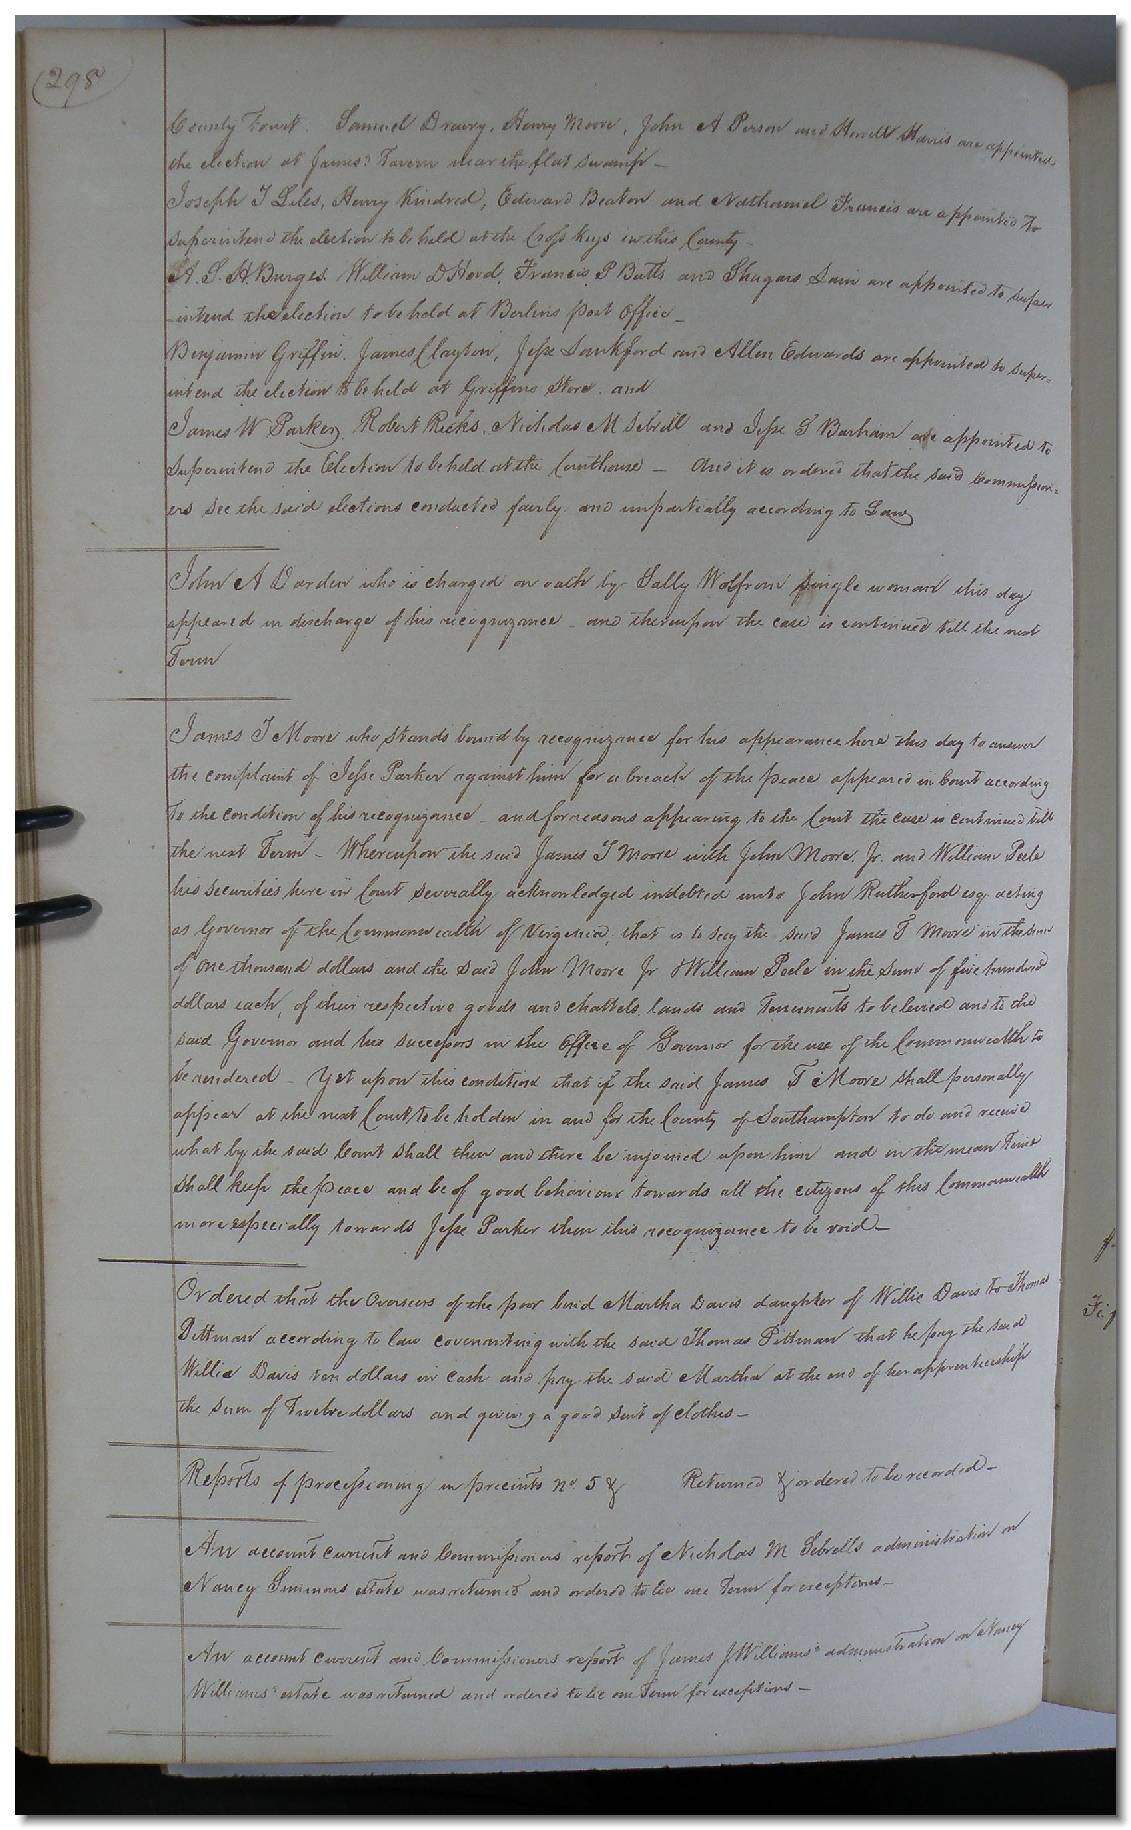 298
County Court. Samuel Drewry, Henry Moore, John A Person and Howell Harris are appointed
the election at James' Tavern near the flat swamp —
Joseph T Liles, Henry Kindred, Edward Beaton and Nathaniel Francis are appointed to
superintend the election to be held at the Cross Keys in this County —
A. S. H. Burges, William D Hood, Francis P Butts and Shugars Lain are appointed to super
-intend the election to be held at Berlins post office —
Benjamin Griffin, James Clayton, Jesse Lankford and Allen Edwards are appointed to super-
intend the election to be held at Griffins Store. and
James W Parker, Robert Ricks, Nicholas M Sebrell and Jesse S Barham are appointed to
superintend the Election to be held at the Courthouse — And it is ordered that the said Commission-
ers see the said elections conducted fairly and impartially according to Law
John A Darden who is charged on oath by Sally Wolfrom single woman this day
appeared in discharge of his recognizance — and thereupon the case is continued till the next
Term
James T Moore who stands bound by recognizance for his appearance here this day to answer
the complaint of Jesse Parker against him for a breach of the peace appeared in Court according
to the condition of his recognizance — and for reasons appearing to the Court the case is continued till
the next Term — Whereupon the said James T Moore with John Moore Jr. and William Peele
his securities here in Court severally acknowledged indebted unto John Rutherford esq. acting
as Governor of the Commonwealth of Virginia, that is to say the said James T Moore in the sum
of one thousand dollars and the said John Moore Jr & William Peele in the sum of five hundred
dollars each, of their respective goods and chattels, lands and Tenements to be levied and to the
said Governor and his successors in the office of Governor for the use of the Commonwealth to
be rendered — Yet upon this condition that if the said James T Moore shall personally
appear at the next Court to be holden in and for the County of Southampton to do and receive
what by the said Court shall then and there be injoined upon him and in the mean Time
shall keep the peace and be of good behaviour towards all the citizens of this Commonwealth
more especially towards Jesse Parker then this recognizance to be void —
Ordered that the Overseers of the poor bind Martha Davis daughter of Willie Davis to Thomas
Pittman according to law covenanting with the said Thomas Pittman that he pay the said
Willie Davis ten dollars in cash and pay the said Martha at the end of her apprenticeship
the sum of Twelve dollars and giving a good suit of clothes —
Reports of processioning in precincts no. 5 & Returned & ordered to be recorded —
An account current and Commissioners report of Nicholas M Sebrells administration on
Nancy Simmons estate was returned and ordered to lie one Term for exceptions —
An account current and Commissioners report of James J Williams' administration on Nancy
Williams' estate was returned and ordered to lie one Term for exceptions —